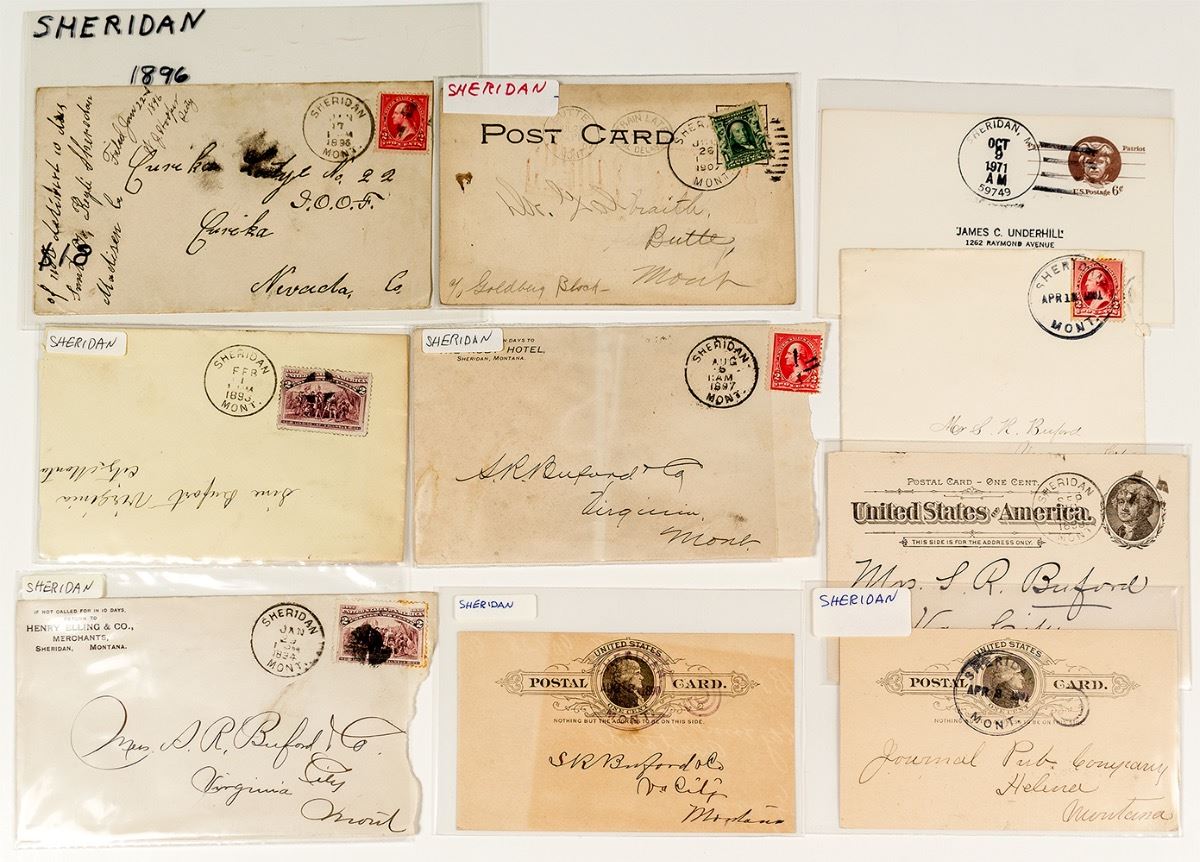 SHERIDAN
1896
of not delivered 10 days
Madison Co
Filed June 22
1896
SHERIDAN
JAN
17
1896
MONT.
Eureka Lodge No. 22
I.O.O.F.
Eureka
Nevada, Co
SHERIDAN
POST CARD
BUTTE
MONT.
TRAIN LATE
SHERIDAN
26
1907
MONT
Butte,
Mont
c/o Goldberg Block
SHERIDAN, MT
OCT
9
1971
AM
59749
Patriot
U.S. Postage 6¢
JAMES C. UNDERHILL
1262 RAYMOND AVENUE
SHERIDAN
APR 18
MONT.
Mr S. R. Buford
SHERIDAN
SHERIDAN
FEB
1
MONT.
Virginia
City Monta
SHERIDAN
N DAYS TO
HOTEL,
SHERIDAN, MONTANA.
SHERIDAN
AUG
6
1 AM
1897
MONT.
2 TWO CENTS 2
S.R. Buford & Co
Virginia,
Mont.
POSTAL CARD – ONE CENT.
United States of America.
THIS SIDE IS FOR THE ADDRESS ONLY.
SHERIDAN
SEP
MONT.
Mrs S R Buford
Va City
SHERIDAN
IF NOT CALLED FOR IN 10 DAYS,
RETURN TO
HENRY ELLING & CO.,
MERCHANTS,
SHERIDAN, MONTANA.
SHERIDAN
JAN
23
1894
MONT.
Mess. S. R. Buford & Co.
Virginia City
Mont
SHERIDAN
UNITED STATES
POSTAL CARD.
ONE CENT
NOTHING BUT THE ADDRESS TO BE ON THIS SIDE.
S R Buford & Co
Va City
Montana
SHERIDAN
UNITED STATES
POSTAL CARD.
SHERIDAN
APR 8
MONT.
Journal Pub. Company
Helena
Montana